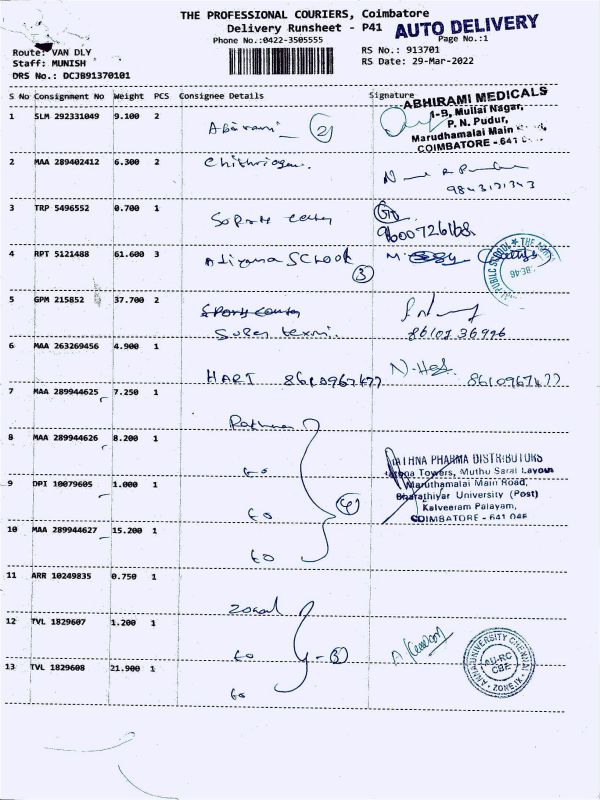 THE PROFESSIONAL COURIERS, Coimbatore
Delivery Runsheet - P41
AUTO DELIVERY
Phone No.:0422-3505555
Page No.:1
Route: VAN DLY
Staff: MUNISH
DRS No.: DCJB91370101
RS No.: 913701
RS Date: 29-Mar-2022
S No Consignment No Weight PCS Consignee Details Signature
ABHIRAMI MEDICALS
1-B, Mullai Nagar,
P. N. Pudur,
Marudhamalai Main
COIMBATORE - 641
1 SLM 292331049 9.100 2 Abirami (2)
2 MAA 289402412 6.300 2
9843171343
3 TRP 5496552 0.700 1
9600726168
4 RPT 5121488 61.600 3 SCHOOL (3)
PUBLIC SCHOOL ★ THE
5 GPM 215852 37.700 2
6 MAA 263269456 4.900 1
HARI 8610967477 8610967477
7 MAA 289944625 7.250 1 Rathna
8 MAA 289944626 8.200 1 to
RATHNA PHARMA DISTRIBUTORS
Rathna Towers, Muthu Sarai Layout
Maruthamalai Main Road,
Bharathiyar University (Post)
Kalveeram Palayam,
COIMBATORE - 641 046
9 DPI 10079605 1.000 1 to (4)
10 MAA 289944627 15.200 1 to
11 ARR 10249835 0.750 1 zonal
12 TVL 1829607 1.200 1 to - (3)
ANNA UNIVERSITY CHENNAI
AU-RC
CBE
ZONE-IX
13 TVL 1829608 21.900 1 to